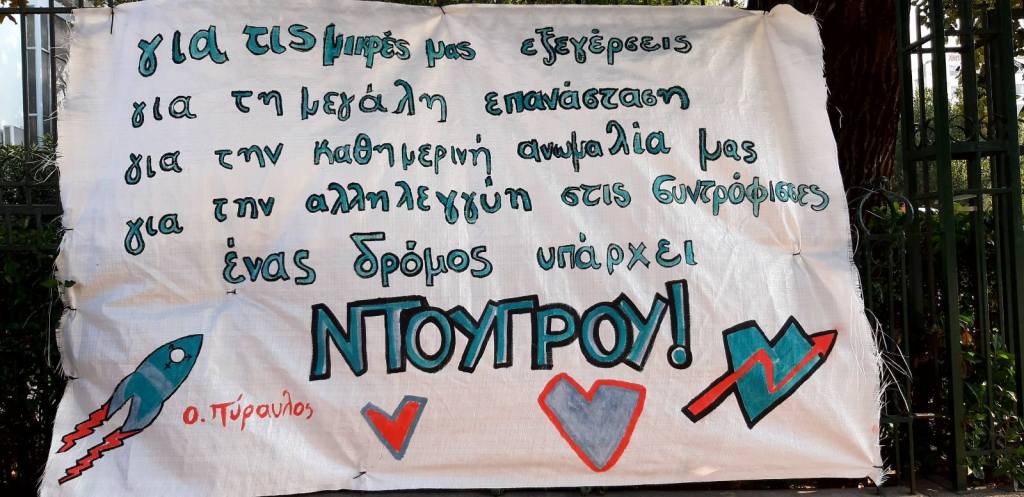 για τις μικρές μας εξεγέρσεις
για τη μεγάλη επανάσταση
για την καθημερινή ανωμαλία μας
για την αλληλεγγύη στις συντρόφισσες
ένας δρόμος υπάρχει
ΝΤΟΥΓΡΟΥ!
ο. πύραυλος